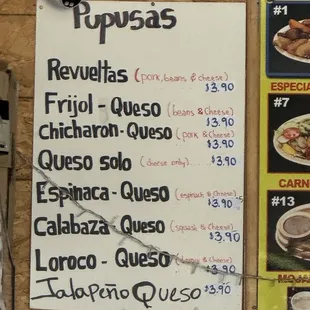 Pupusas
Revueltas (pork, beans & cheese)
$3.90
Frijol - Queso (beans & Cheese)
$3.90
Chicharon - Queso (pork & Cheese)
$3.90
Queso solo (cheese only) $3.90
Espinaca - Queso (espinash & Cheese)
$3.90
Calabaza - Queso (squash & Cheese)
$3.90
Loroco - Queso & Cheese)
$3.90
Jalapeño Queso $3.90
#1
ESPECIA
#7
CARN
#13
MOJA